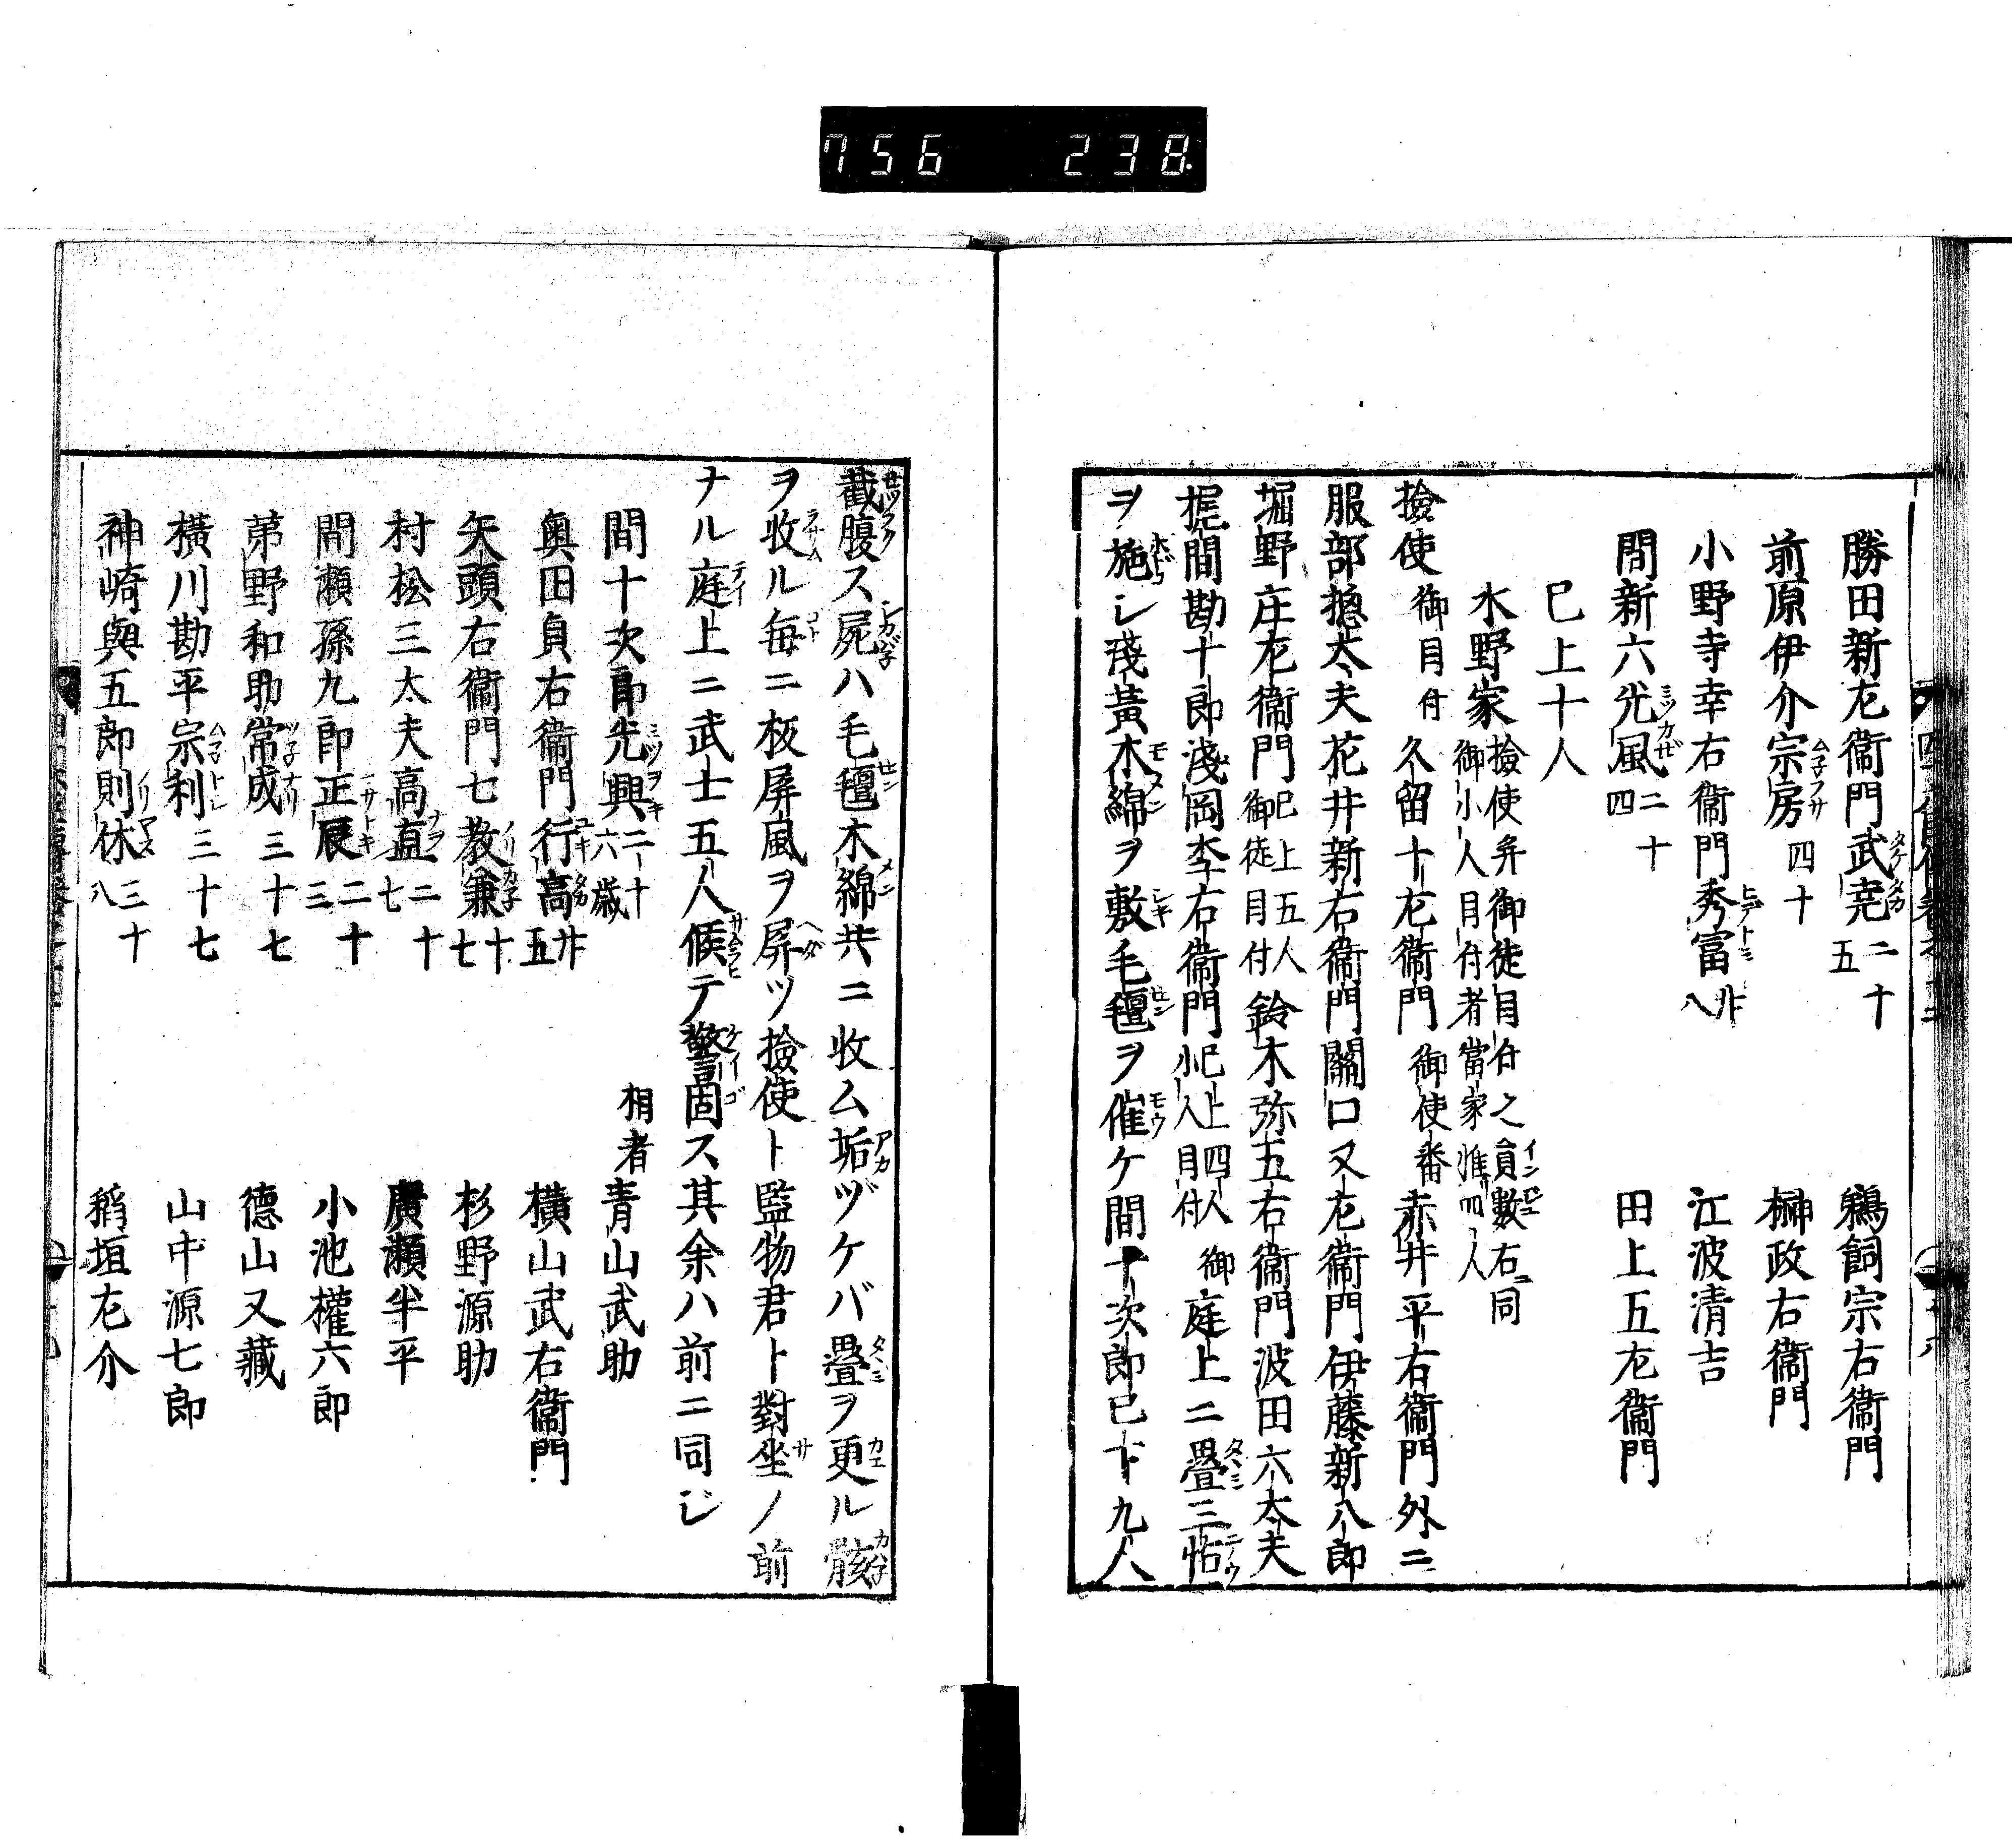 756 238
勝田新左衞門武尭二十五 鵜飼宗右衞門
前原伊介宗房四十 榊政右衞門
小野寺幸右衞門秀富廿八 江波清吉
間新六光風二十四 田上五左衞門
已上十人
水野家撿使并御徒目付之員數右ニ同御小人目付者當家惟四人
撿使御目付久留十左衞門御使番赤井平右衞門外ニ
服部摠太夫花井新右衞門關口又左衞門伊藤新八郎
堀野庄左衞門已上五人御徒目付鈴木弥五右衞門波田六太夫
梶間勘十郎淺岡李右衞門已上四人小人目付御庭上ニ疊三帖
ヲ施シ淺黃木綿ヲ敷毛氊ヲ催ケ間十次郎已下九人
截腹ス屍ハ毛氊木綿共ニ收ム垢ヅケバ疊ヲ更ル骸
ヲ收ル毎ニ板屏風ヲ屏ツ撿使ト監物君ト對坐ノ前
ナル庭上ニ武士五人候テ警固ス其余ハ前ニ同じ
相者
間十次郎光興二十六歳 青山武助
奧田貞右衞門行高廿五 橫山武右衞門
矢頭右衞門七教兼十七 杉野源助
村松三太夫高直二十七 廣瀬半平
間瀬孫九郎正辰二十三 小池權六郎
茅野和助常成三十七 德山又藏
橫川勘平宗利三十七 山中源七郎
神崎與五郎則休三十八 稻垣左介